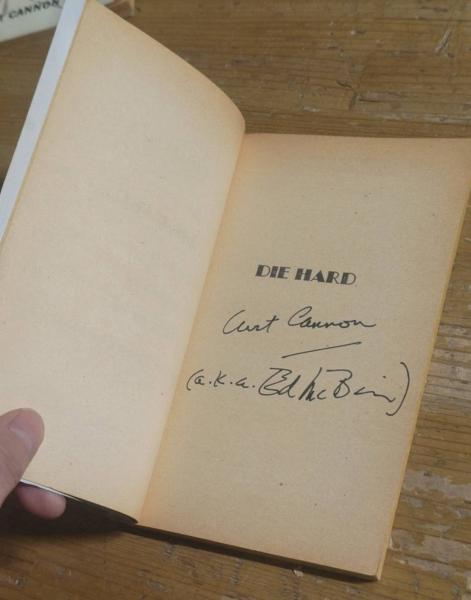 CANNON
DIE HARD
Curt Cannon
(a.k.a. Ed McBain)